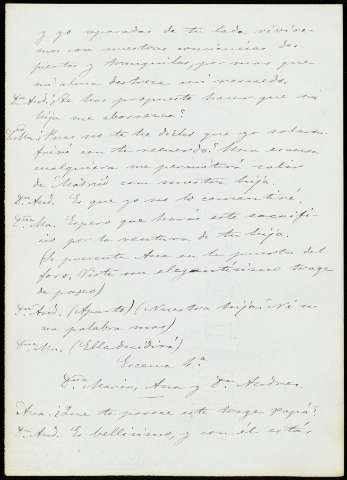 y yo separadas de tu lado vivire-
mos con nuestras conciencias des-
piertas y tranquilas, por mas que
mi alma destroce mi recuerdo.
Dn And. ¿Te has propuesto hacer que mi
hija me aborrezca?
Dña Ma. ¿Pues no te he dicho que yo sola su-
friré con tu recuerdo? Una escusa
cualquiera me permitirá salir
de Madrid con nuestra hija.
Dn And. Es que yo no lo consentiré.
Dña Ma. Espero que harás este sacrifi-
cio por la ventura de tu hija.
(Se presenta Ana en la puerta del
foro. Viste un elegantísimo traje
de paseo)
Dn And. (Aparte) (Nuestra hija! Ni u-
na palabra mas)
Dña Ma. (Ella decidirá)
Escena 4ª
Dña María, Ana y Dn Andres
Ana. ¿Que te parece este traje papá?
Dn And. Es bellisimo, y con él estás